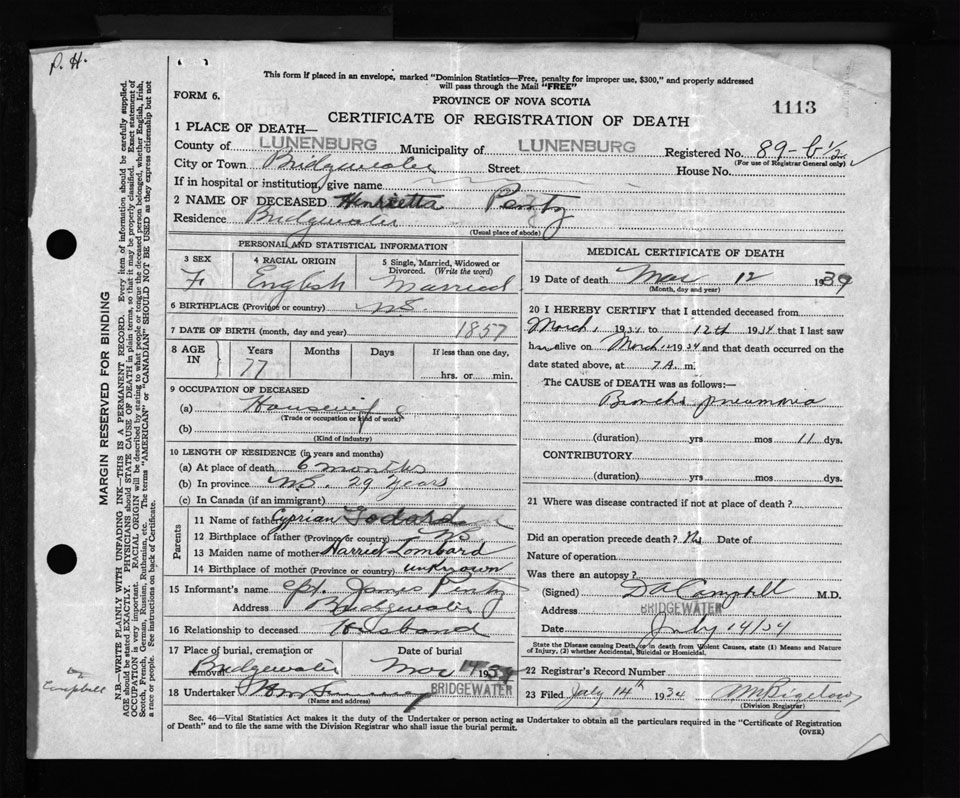 P. H.
This form if placed in an envelope, marked "Dominion Statistics—Free, penalty for improper use, $300," and properly addressed
will pass through the Mail "FREE"
FORM 6.
PROVINCE OF NOVA SCOTIA
1113
CERTIFICATE OF REGISTRATION OF DEATH
1 PLACE OF DEATH—
County of LUNENBURG Municipality of LUNENBURG Registered No. 89-6½
(For use of Registrar General only)
City or Town Bridgewater Street House No.
If in hospital or institution, give name
2 NAME OF DECEASED Henrietta Pentz
Residence Bridgewater
(Usual place of abode)
PERSONAL AND STATISTICAL INFORMATION
3 SEX 4 RACIAL ORIGIN 5 Single, Married, Widowed or
Divorced. (Write the word)
F English Married
6 BIRTHPLACE (Province or country) N.S.
7 DATE OF BIRTH (month, day and year) 1857
8 AGE IN Years Months Days If less than one day,
77 hrs. or min.
9 OCCUPATION OF DECEASED
(a) Housewife
(Trade or occupation or kind of work)
(b)
(Kind of industry)
10 LENGTH OF RESIDENCE (in years and months)
(a) At place of death 6 months
(b) In province N.S. 29 years
(c) In Canada (if an immigrant)
Parents
11 Name of father Cyprian Godard
12 Birthplace of father (Province or country) NS
13 Maiden name of mother Harriet Lombard
14 Birthplace of mother (Province or country) unknown
15 Informant's name Cpt. James Pentz
Address Bridgewater
16 Relationship to deceased Husband
17 Place of burial, cremation or removal Date of burial
Bridgewater Mar 14 1934
18 Undertaker BRIDGEWATER
(Name and address)
MEDICAL CERTIFICATE OF DEATH
19 Date of death Mar 12 1934
(Month, day and year)
20 I HEREBY CERTIFY that I attended deceased from
March 1 1934 to 12th 1934 that I last saw
her alive on March 1934 and that death occurred on the
date stated above, at 7 A. m.
The CAUSE of DEATH was as follows:—
Broncho pneumonia
(duration) yrs mos 11 dys.
CONTRIBUTORY
(duration) yrs mos dys.
21 Where was disease contracted if not at place of death?
Did an operation precede death? No Date of
Nature of operation
Was there an autopsy?
(Signed) DA Campbell M.D.
Address BRIDGEWATER
Date July 14/34
State the Disease causing Death, or in death from Violent Causes, state (1) Means and Nature
of Injury, (2) whether Accidental, Suicidal or Homicidal.
22 Registrar's Record Number
23 Filed July 14th 1934 Bigelow
(Division Registrar)
Sec. 46—Vital Statistics Act makes it the duty of the Undertaker or person acting as Undertaker to obtain all the particulars required in the "Certificate of Registration
of Death" and to file the same with the Division Registrar who shall issue the burial permit.
(OVER)
MARGIN RESERVED FOR BINDING
N.B.—WRITE PLAINLY WITH UNFADING INK—THIS IS A PERMANENT RECORD. Every item of information should be carefully supplied.
AGE should be stated EXACTLY. PHYSICIANS should STATE CAUSE OF DEATH in plain terms, so that it may be properly classified. Exact statement of
OCCUPATION is very important. RACIAL ORIGIN will be described by stating to what people or tongue the deceased person belonged, whether English, Irish,
Scotch, French, German, Russian, Ruthenian, etc. The terms "AMERICAN" or "CANADIAN" SHOULD NOT BE USED as they express citizenship but not
a race or people. See instructions on back of Certificate.
Campbell